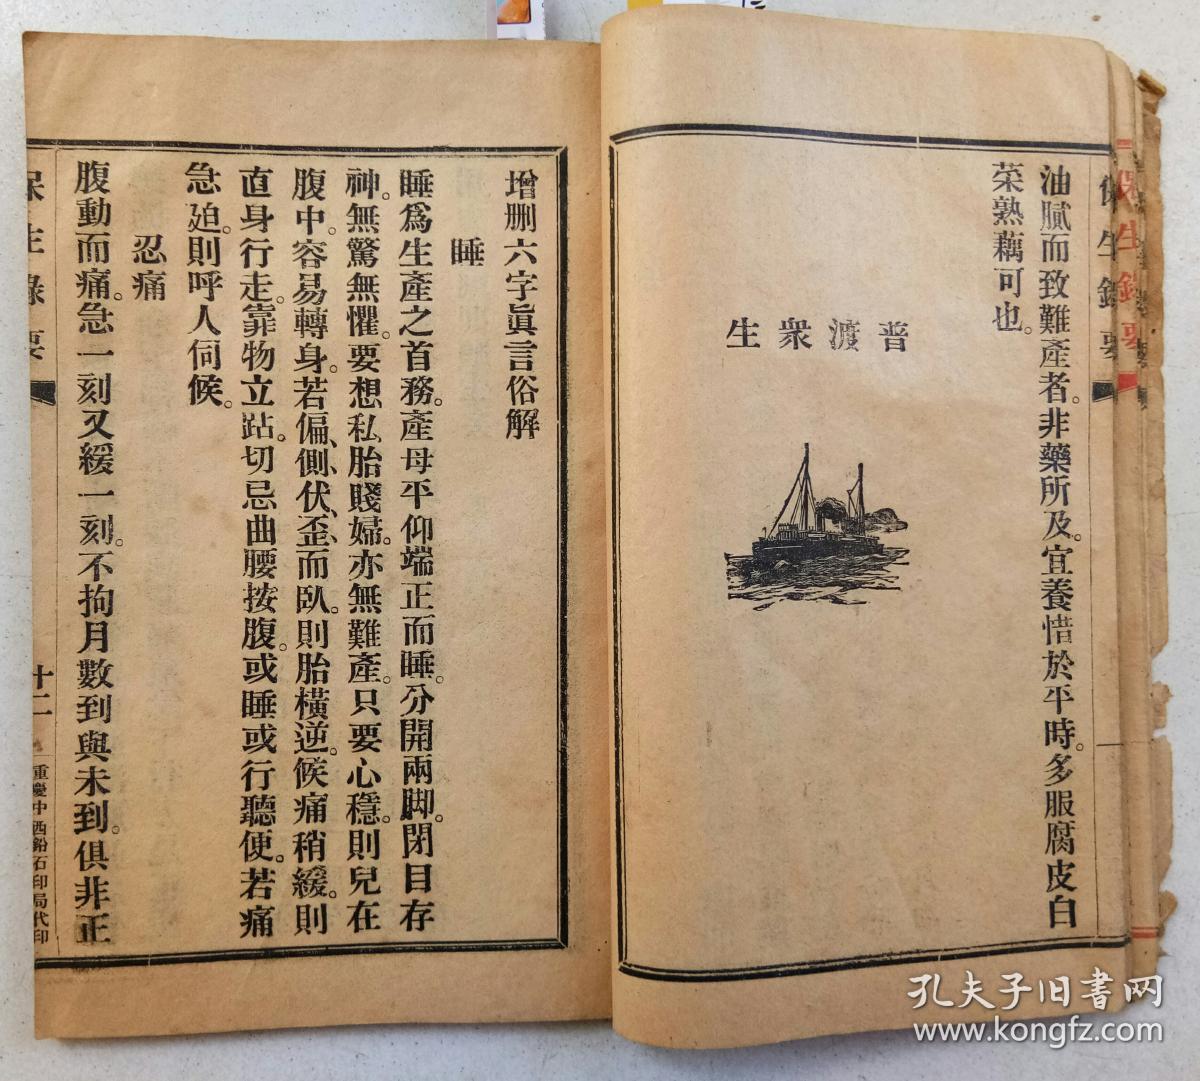 油膩而致難產者。非藥所及。宜養惜於平時。多服腐皮白
菜熟藕可也。
普渡衆生
增刪六字眞言俗解
睡
睡爲生產之首務。產母平仰端正而睡。分開兩脚。閉目存
神。無驚無懼。要想私胎賤婦。亦無難產。只要心穩。則兒在
腹中。容易轉身。若偏、側、伏、歪、而臥。則胎橫逆。候痛稍緩。則
直身行走。靠物立跕。切忌曲腰按腹。或睡或行聽便。若痛
急廹。則呼人伺候。
忍痛
腹動而痛。急一刻又緩一刻。不拘月數到與未到。俱非正
保生錄要
十二
重慶中西鉛石印局代印
保生錄要
保生錄要
孔夫子旧书网
www.kongfz.com